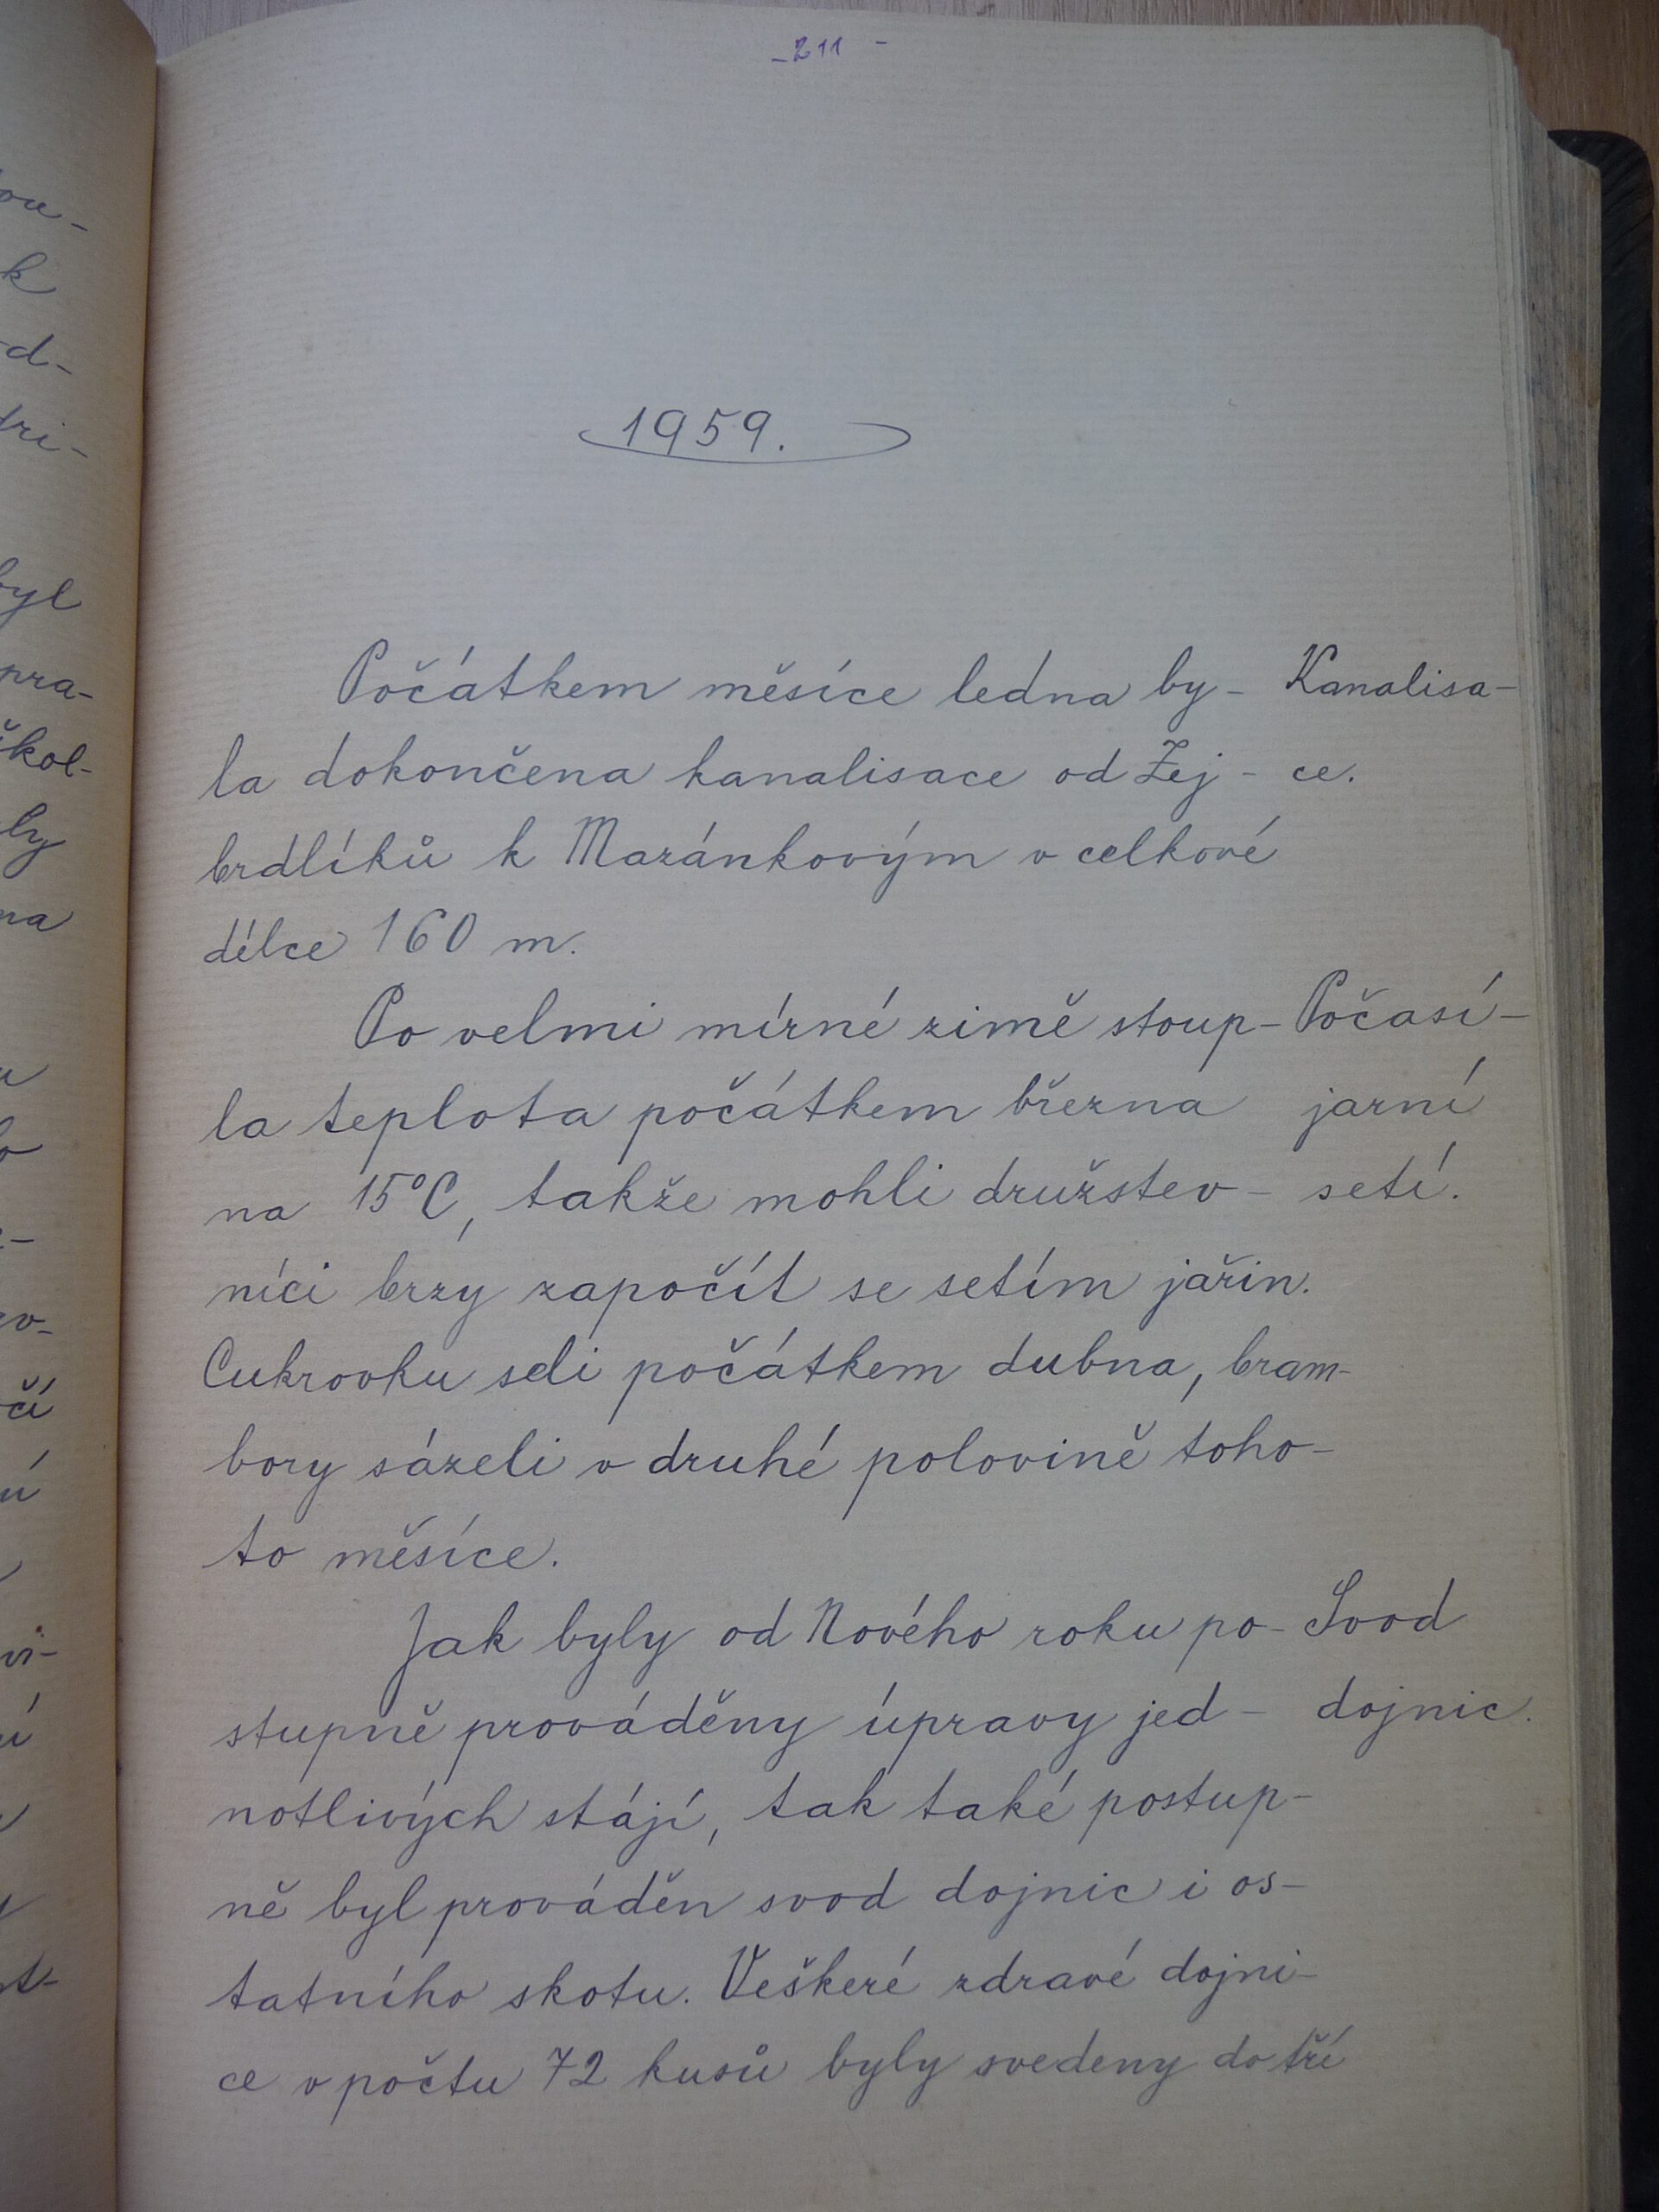 - 211 -
1959.
Počátkem měsíce ledna by- Kanalisa-
la dokončena kanalisace od Zej- ce.
brdlíků k Maránkovým v celkové
délce 160 m.
Po velmi mírné zimě stoup- Počasí -
la teplota počátkem března jarní
na 15°C, takže mohli družstev- setí.
níci brzy započít se setím jařin.
Cukrovku seli počátkem dubna, bram-
bory sázeli v druhé polovině toho-
to měsíce.
Jak byly od Nového roku po- Svod
stupně prováděny úpravy jed- dojnic.
notlivých stájí, tak také postup-
ně byl prováděn svod dojnic i os-
tatního skotu. Veškeré zdravé dojni-
ce v počtu 72 kusů byly svedeny do tří